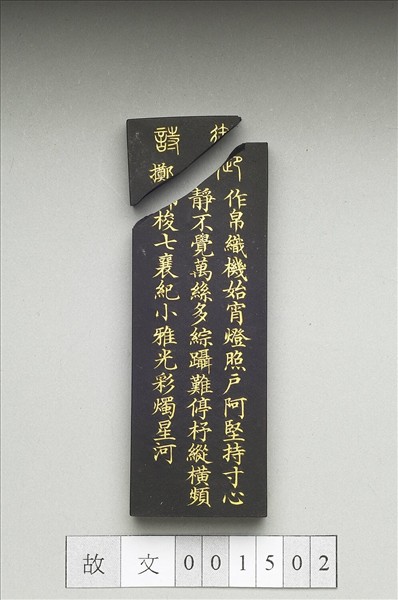 御詩
作帛織機始宵燈照戶阿堅持寸心
靜不覺萬絲多綜躡難停杼縱橫頻
擲梭七襄紀小雅光彩燭星河
故文001502